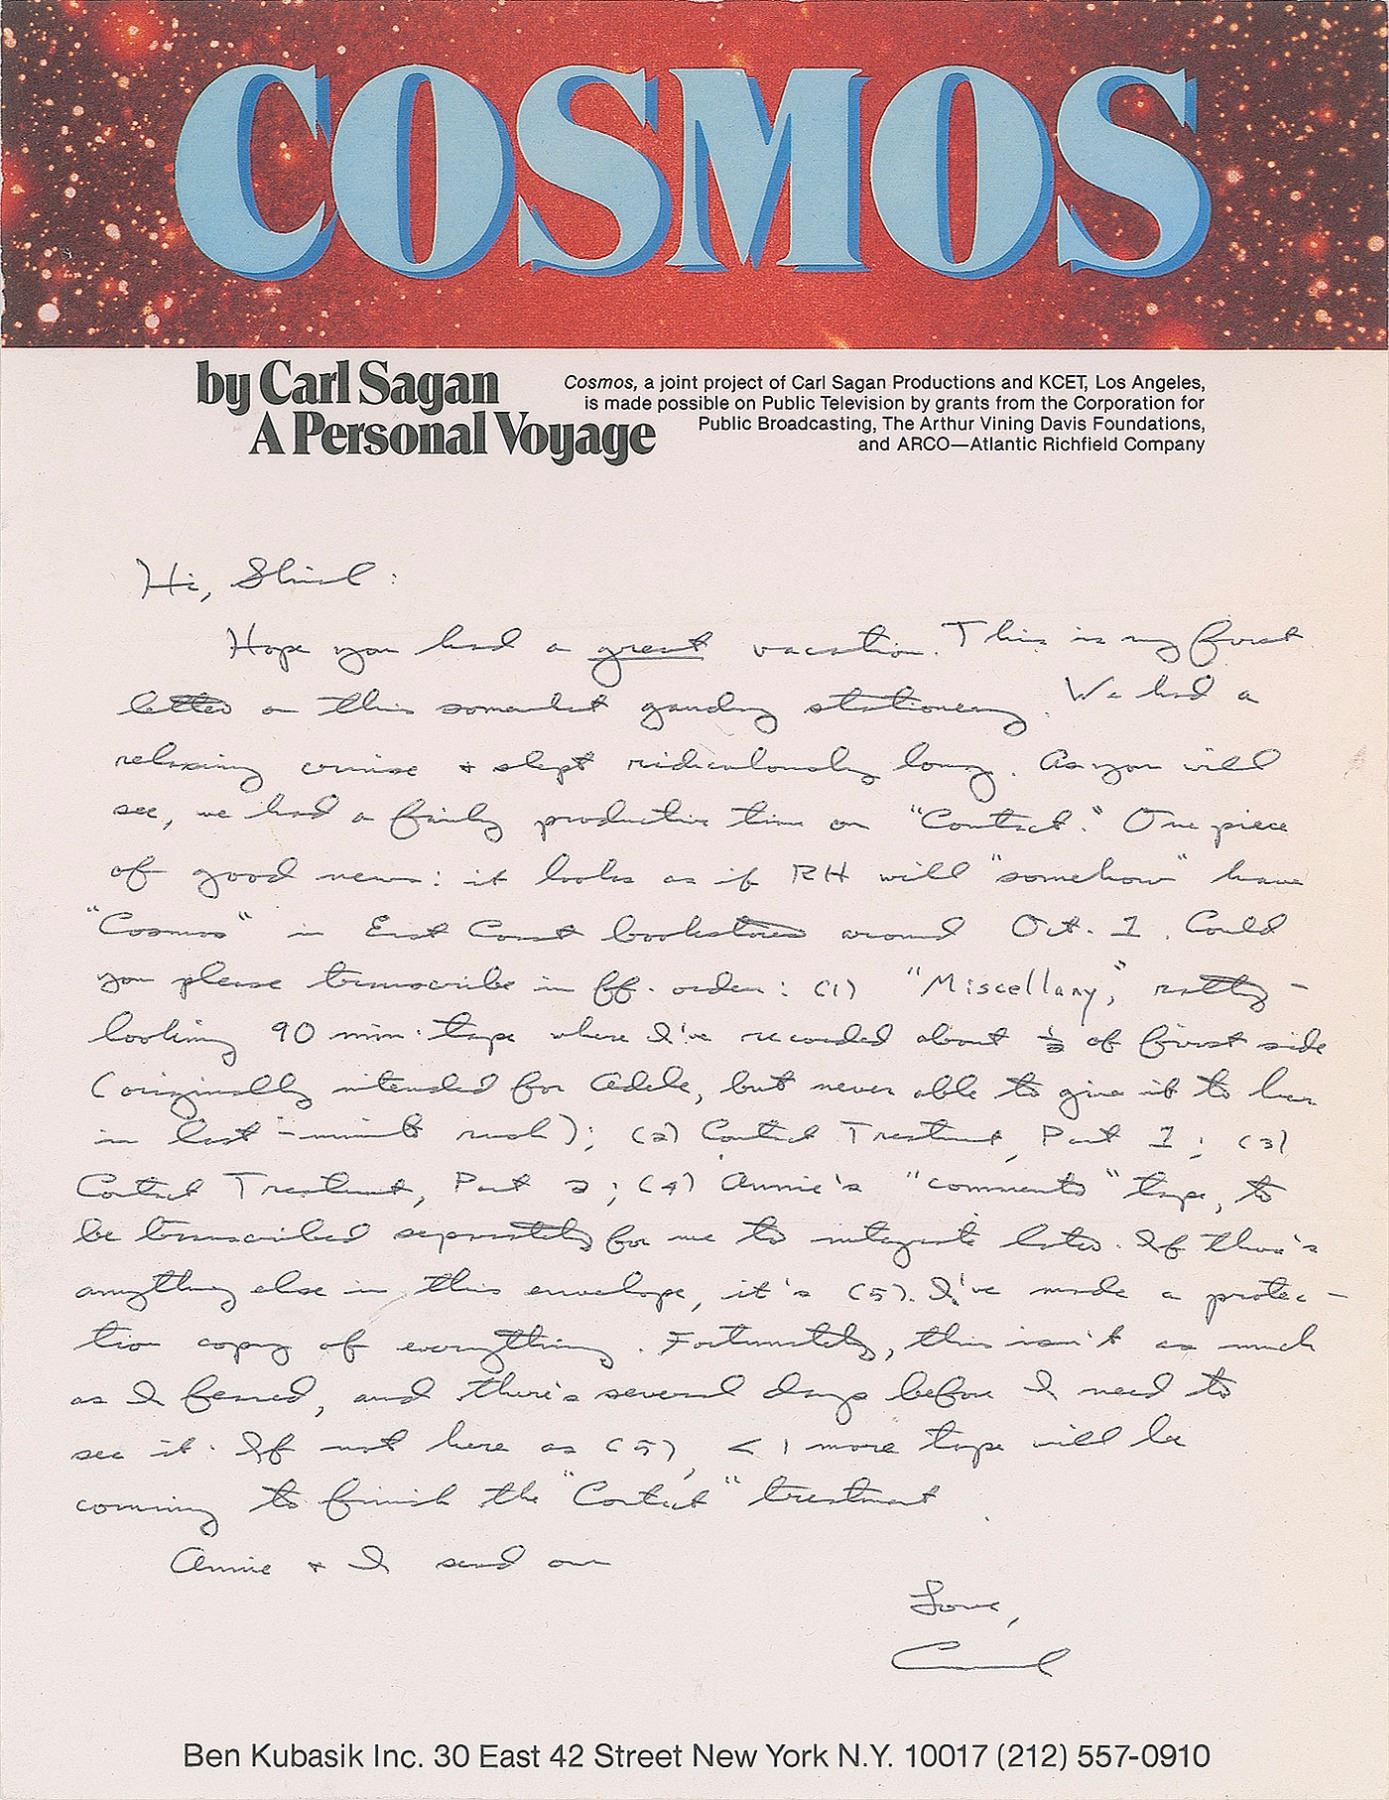 COSMOS
by Carl Sagan
A Personal Voyage
Cosmos, a joint project of Carl Sagan Productions and KCET, Los Angeles,
is made possible on Public Television by grants from the Corporation for
Public Broadcasting, The Arthur Vining Davis Foundations,
and ARCO—Atlantic Richfield Company
Hi, Shirl:
Hope you had a great vacation. This is my first
letter on this somewhat gaudy stationery. We had a
relaxing cruise + slept ridiculously long. As you will
see, we had a fairly productive time on "Contact." One piece
of good news: it looks as if RH will "somehow" have
"Cosmos" in East Coast bookstores around Oct. 1. Could
you please transcribe in ff. order: (1) "Miscellany," ratty-
looking 90 min. tape where I've recorded about ½ of first side
(originally intended for Adele, but never able to give it to her
in last-minute rush); (2) Contact Treatment, Part 1; (3)
Contact Treatment, Part 2; (4) Annie's "comments" tape, to
be transcribed separately for me to integrate later. If there's
anything else in this envelope, it's (5). I've made a protec-
tion copy of everything. Fortunately, this isn't as much
as I feared, and there's several days before I need to
see it. If not here as (5), < 1 more tape will be
coming to finish the "Contact" treatment.
Annie + I send our
Love,
Carl
Ben Kubasik Inc. 30 East 42 Street New York N.Y. 10017 (212) 557-0910